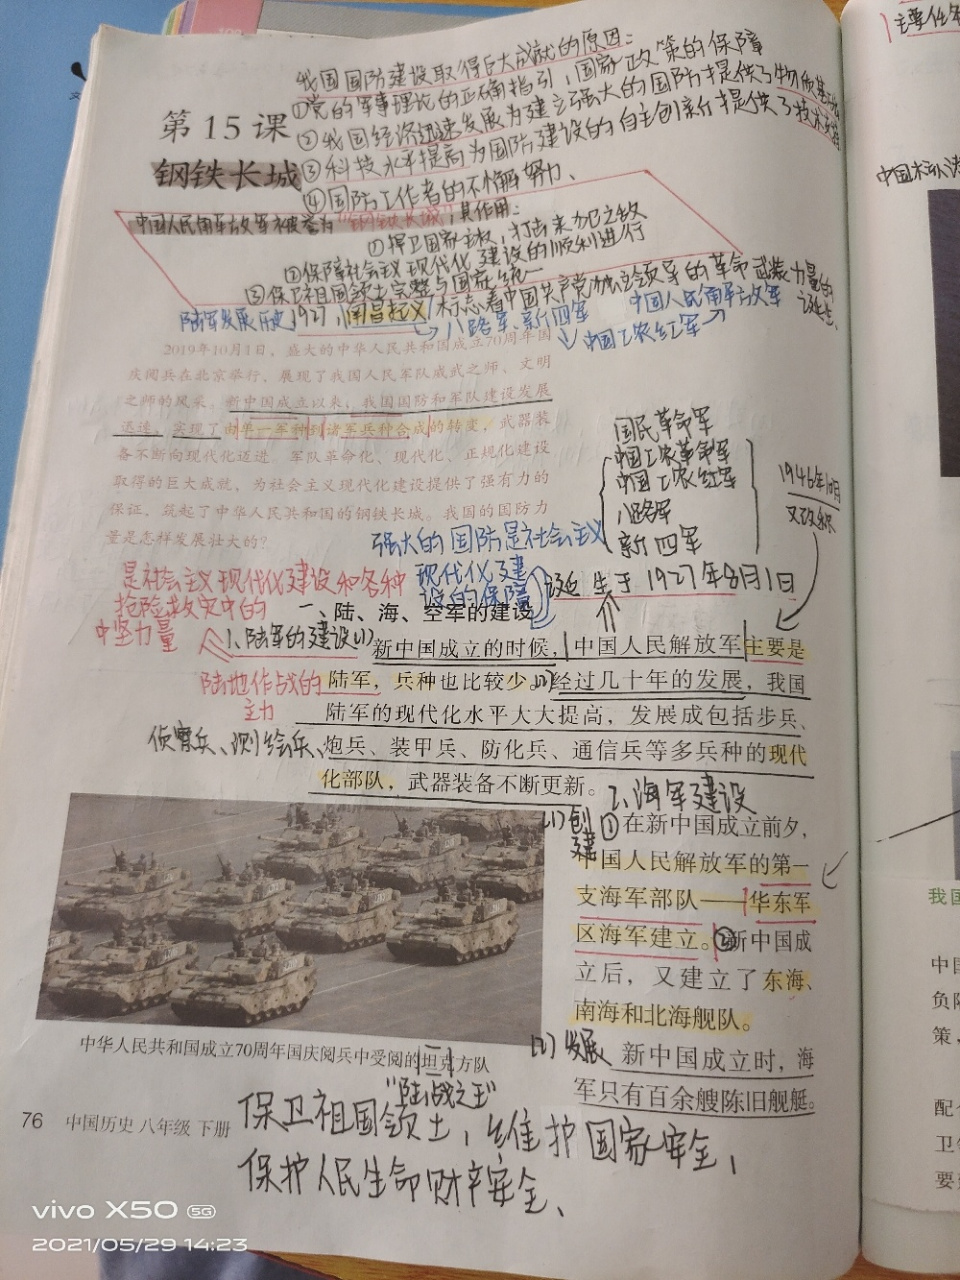 我国国防建设取得巨大成就的原因:
①党的军事理论的正确指引,国家政策的保障
②我国经济迅速发展为建立强大的国防提供了物质基础
③科技水平提高为国防建设的自主创新提供了技术支持
④国防工作者的不懈努力、
第15课
钢铁长城
中国人民解放军被誉为“钢铁长城”,其作用:
①捍卫国家主权,打击来犯之敌
②保障社会主义现代化建设的顺利进行
③保卫祖国领土完整与国家统一
陆军发展历史 1927,南昌起义 标志着中国共产党独立领导的革命武装力量的诞生、
八路军、新四军 中国工农红军 中国人民解放军
2019年10月1日,盛大的中华人民共和国成立70周年国
庆阅兵在北京举行,展现了我国人民军队威武之师、文明
之师的风采。新中国成立以来,我国国防和军队建设发展
迅速,实现了由单一军种到诸军兵种合成的转变,武器装
备不断向现代化迈进,军队革命化、现代化、正规化建设
取得的巨大成就,为社会主义现代化建设提供了强有力的
保证,筑起了中华人民共和国的钢铁长城。我国的国防力
量是怎样发展壮大的?
国民革命军
中国工农革命军
中国工农红军
八路军
新四军
1946年10月
又改称
强大的国防是社会主义
现代化建
设的保障
诞生于1927年8月1日
是社会主义现代化建设和各种
抢险救灾中的
中坚力量
一、陆、海、空军的建设
1、陆军的建设(1)
新中国成立的时候,中国人民解放军主要是
陆地作战的
主力
陆军,兵种也比较少。(2)经过几十年的发展,我国
陆军的现代化水平大大提高,发展成包括步兵、
侦察兵、测绘兵、
炮兵、装甲兵、防化兵、通信兵等多兵种的现代
化部队,武器装备不断更新。
2、海军建设
(1)创建
①在新中国成立前夕,
中国人民解放军的第一
支海军部队——华东军
区海军建立。②新中国成
立后,又建立了东海、
南海和北海舰队。
(2)发展
新中国成立时,海
军只有百余艘陈旧舰艇。
中华人民共和国成立70周年国庆阅兵中受阅的坦克方队
“陆战之王”
保卫祖国领土,维护国家安全,
保护人民生命财产安全、
76 中国历史 八年级 下册
主要任务
我国
中国
负阻
策,
配合
卫领
要
vivo X50 5G
2021/05/29 14:23